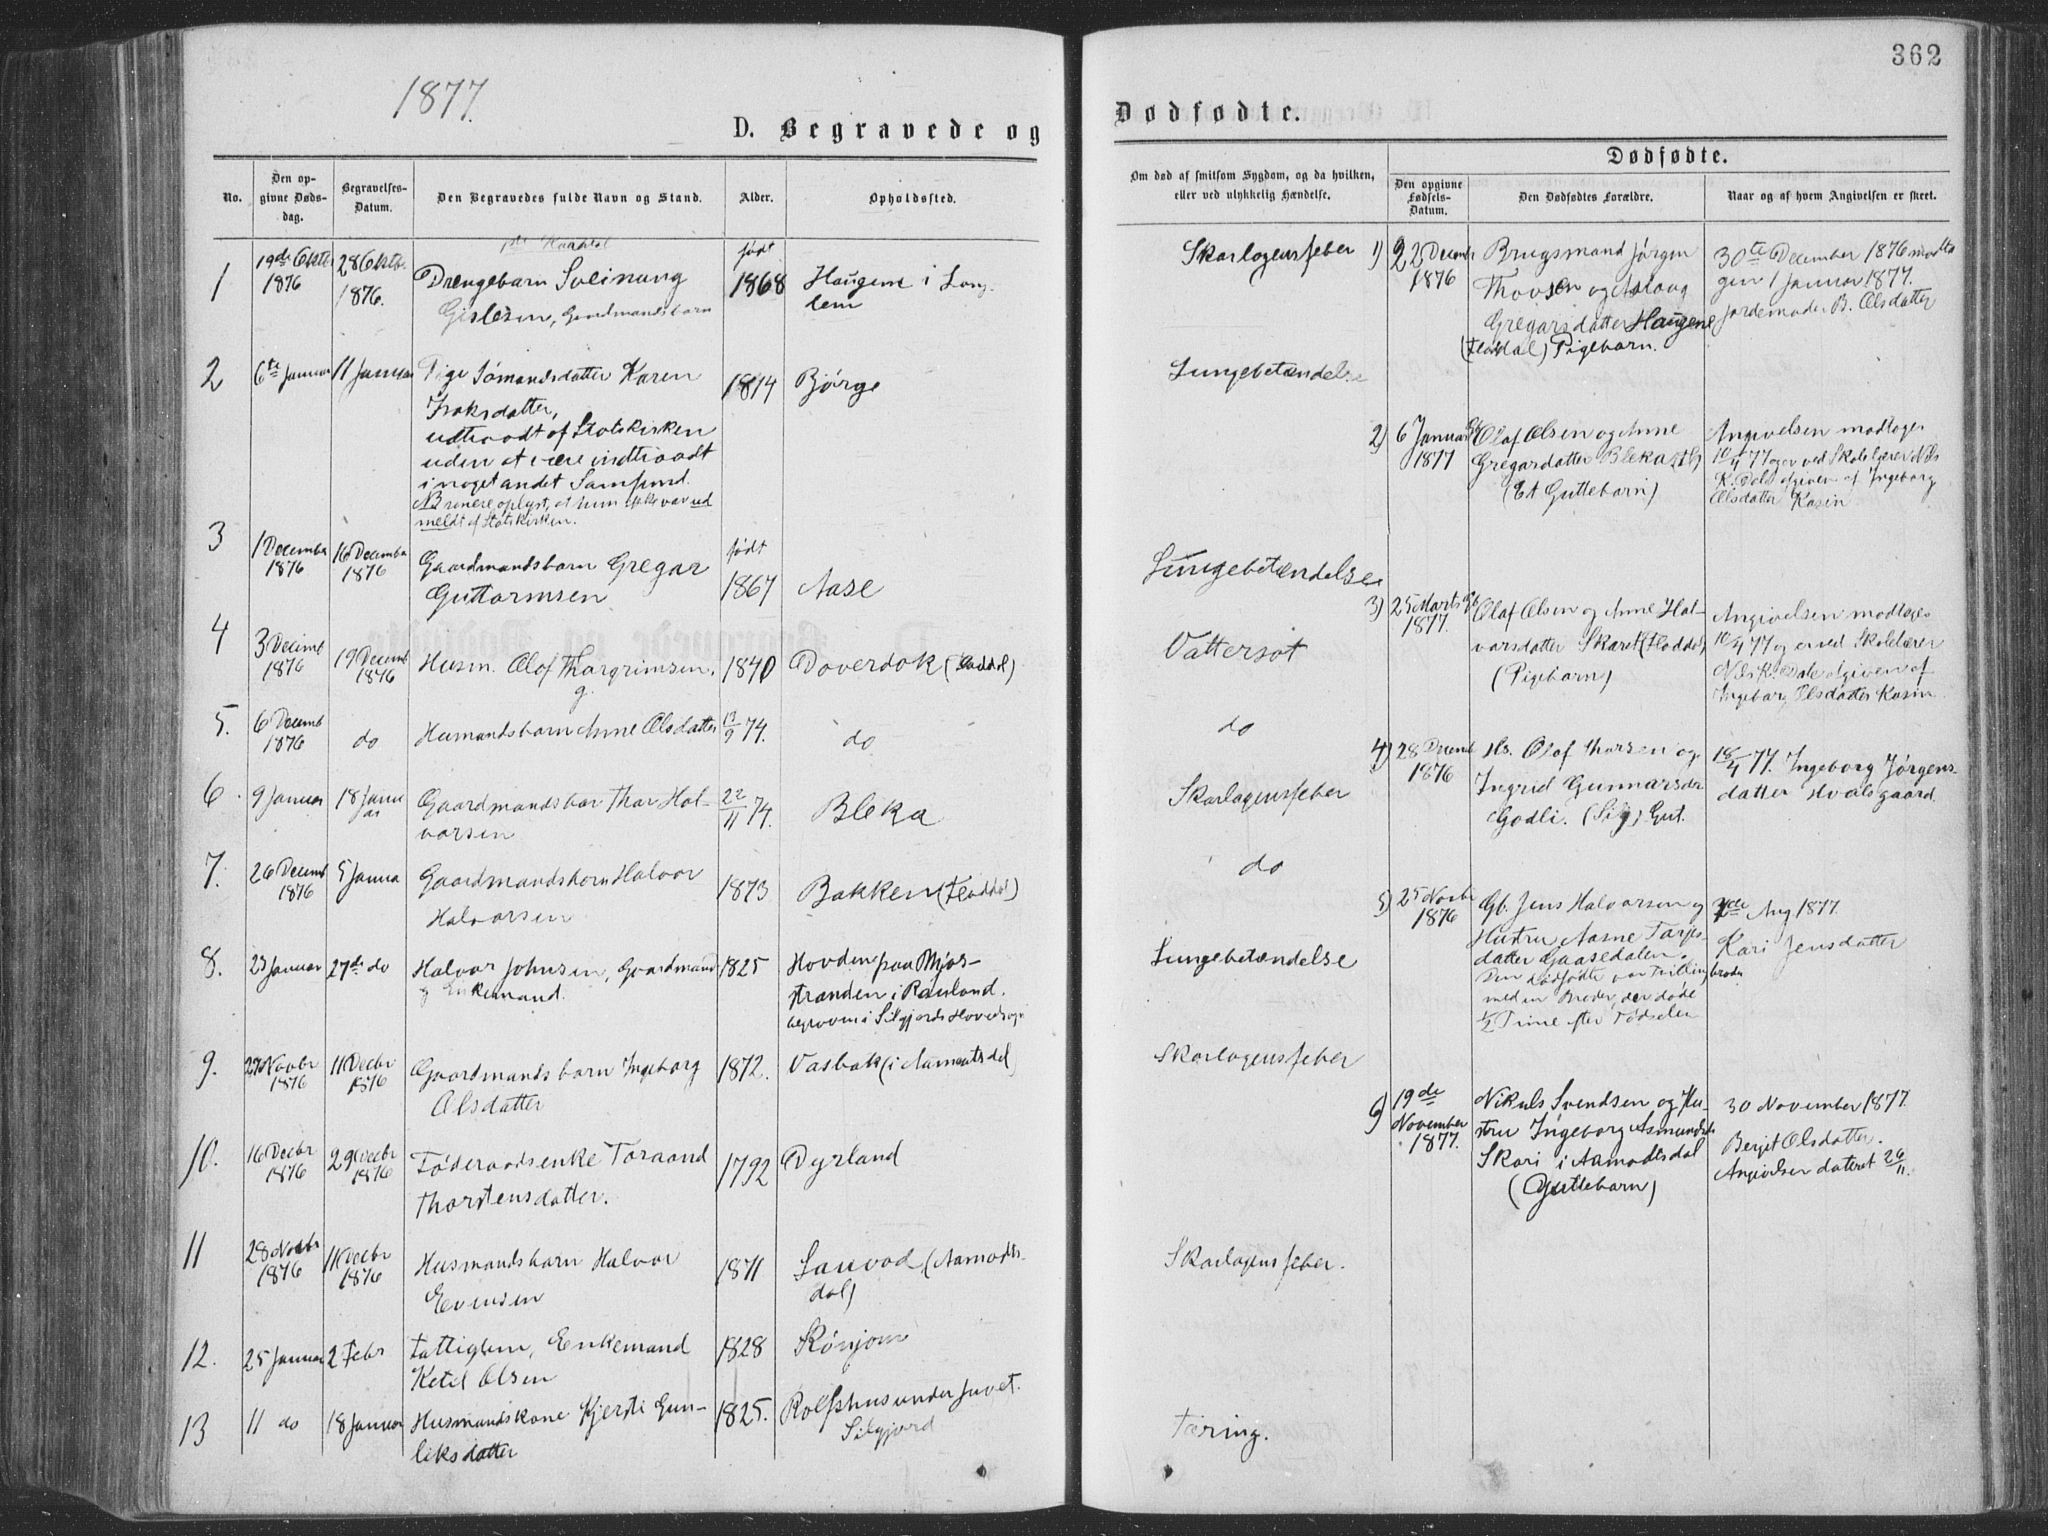 362
1877.
D. Begravede og
Dødfødte.
No.
Den op-
givne Døds-
dag.
Begravelses-
Datum.
Den Begravedes fulde Navn og Stand.
Alder.
Opholdssted.
Om død af smitsom Sygdom, og da hvilken,
eller ved ulykkelig Hændelse.
Dødfødte.
Den opgivne
Fødsels-
Datum.
Den Dødfødtes Forældre.
Naar og af hvem Angivelsen er skeet.
1
19de
1876
28
1876.
Drengebarn Sveinung
Gislesen, Gaardmandsbarn
født
1868
Haugene i
Skarlagensfeber
2
6te Januar
11 Januar
Pige Sømandsdatter Karen
Isaksdatter,
udtraadt af Statskirken
uden at være indtraadt
i noget andet Samfund.
NB senere oplyst, at hun ikke var ud
meldt af Statskirken.
1814
Bjørge
Lungebetændelse
3
1 December
1876
16 December
1876
Gaardmandsbarn Gregar
Guttormsen
født
1867
Aase
Lungebetændelse
4
3 Decemb
1876
19 Decemb
1876
Husm. Olof Thorgrimsen.
1840
Doverdok (Flatdal)
Vattersot
5.
6 Decemb
1876
do
Husmandsbarn Anne Olsdatter
74.
do
do
6.
9 Januar
18 Janu
ar
Gaardmandsbar Thor Hal-
vorsen
22/11 74.
Bleka
Skarlagensfeber
7.
26 Decemb
1876
5 Janua
Gaardmandsbarn Halvor
Halvorsen
1873
Bakken (Flatdal)
do
8.
23 Januar
27de do
Halvor Johnsen, Gaardmand
og Enkemand.
1825
Hovden paa Mjøs-
stranden i Rauland.
begraven i Silgjords Hovedsogn
Lungebetændelse
9.
Novbr
1876
11 Decbr
1876
Gaardmandsbarn Ingeborg
Olsdatter
1872.
Vasbak (i Aamotsdal
Skarlagensfeber
10.
16 Decbr
1876
29 Decbr
1876
Føderaadsenke Toraand
Thorstensdatter.
1792
Dyrland
11
28 Novbr
1876
11 Decbr
1876
Husmandsbarn Halvor
Evensen
1871
(Aamodts-
dal)
Skarlagensfeber.
12.
25 Januar
2 Febr
Fattiglem, Enkemand
Ketil Olsen
1828
13
11 do
18 Januar
Husmandskone Kjersti Gun-
leksdatter
1825.
Rolfshus under Juvet.
Silgjord
Tæring.
1)
22 Decemb
1876
Brugsmand Jørgen
Thovsen og Aslaug
Gregarsdatter Haugene
(Flatdal) Pigebarn.
30te December 1876 modta
gen 1 Januar 1877.
Jordemoder B. Olsdatter
2)
6 Januar
1877
Olaf Olsen og Anne
Gregardatter
(Et Guttebarn)
Angivelsen modtoges
10/4 77 og er ved Skolelærer Nils
K. Dale afgiven af Ingeborg
Olsdatter Kasin
3)
25 Marts
1877.
Olaf Olsen og Anne Hal-
vorsdatter Skaret (Flatdal)
(Pigebarn)
Angivelsen modtoges
10/4 77 og er ved Skolelærer
Nils K. Dale afgiven af
Ingeborg Olsdatter Kasin
4)
28 Decemb
1876
Hs. Olaf Thorsen og
Ingrid Gunnarsdr
Godli. Gut.
18/4 77. Ingeborg Jørgens-
datter Hvalsgaard.
5)
25 Novbr
1876
Gb. Jens Halvorsen og
Hustru Aasne Tarjes-
datter Gaasedalen.
Den Dødfødte var Tvilling
med en Broder, der døde
1/2 Time efter Fødselen
Aug 1877.
Kari Jensdatter
6)
19de
November
1877.
Nikuls Svendsen og Hu-
stru Ingeborg Asmundsdr
Skori i Aamodtsdal
(Guttebarn)
30 November 1877.
Bergit Olsdatter.
Angivelsen dateret 26/11.